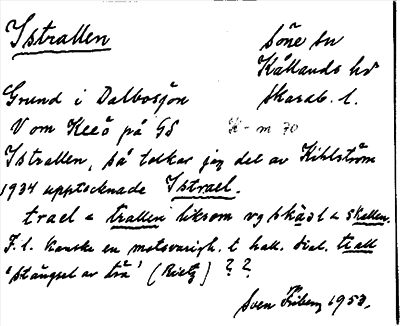 Istrallen
Söne sn
Kållands hd
Skarab. l.
Grund i Dalbosjön
V om Keeö på GS
K - m 70
Istrallen, så tolkar jag det av Kihlström
1934 upptecknade Istrael.
trael = trallen liksom vg skäl = skallen.
F. l. kanske en motsvarigh. t hall. dial. trall
'stängsel av trä' (Rietz) ??
Sven Friberg 1953.